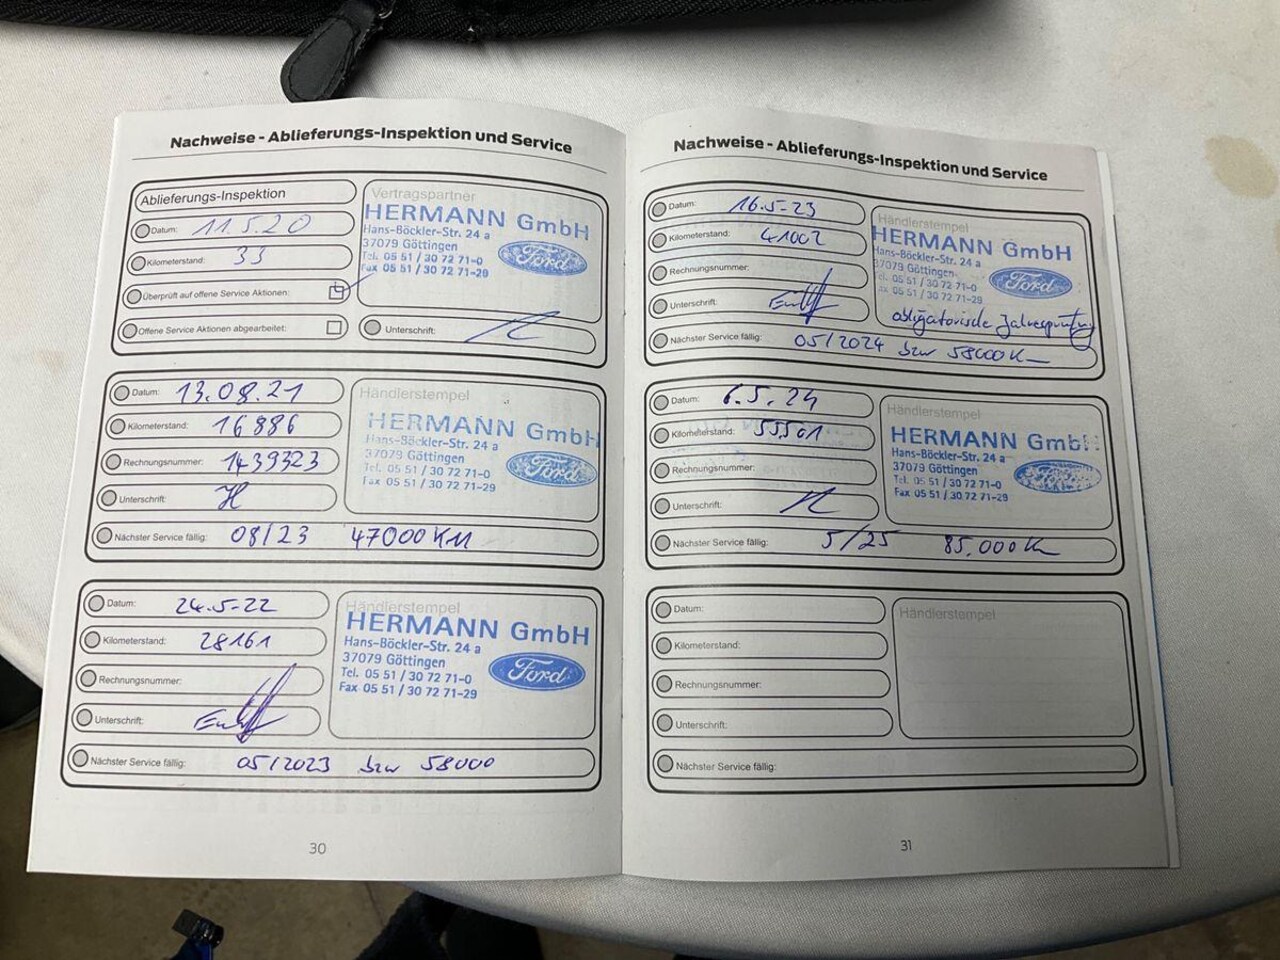 Nachweise - Ablieferungs-Inspektion und Service
Ablieferungs-Inspektion
Datum: 11.5.20
Kilometerstand: 33
Überprüft auf offene Service Aktionen:
Offene Service Aktionen abgearbeitet:
Vertragspartner
HERMANN GmbH
Hans-Böckler-Str. 24 a
37079 Göttingen
Tel. 05 51 / 30 72 71-0
Fax 05 51 / 30 72 71-29
Ford
Unterschrift:
Datum: 13.08.21
Kilometerstand: 16886
Rechnungsnummer: 1439323
Unterschrift:
Händlerstempel
HERMANN GmbH
Hans-Böckler-Str. 24 a
37079 Göttingen
Tel. 05 51 / 30 72 71-0
Fax 05 51 / 30 72 71-29
Ford
Nächster Service fällig: 08/23 47000 KM
Datum: 24.5-22
Kilometerstand: 28161
Rechnungsnummer:
Unterschrift:
Händlerstempel
HERMANN GmbH
Hans-Böckler-Str. 24 a
37079 Göttingen
Tel. 05 51 / 30 72 71-0
Fax 05 51 / 30 72 71-29
Ford
Nächster Service fällig: 05/2023 bzw 58000
30
Nachweise - Ablieferungs-Inspektion und Service
Datum: 16.5-23
Kilometerstand: 41002
Rechnungsnummer:
Unterschrift:
Händlerstempel
HERMANN GmbH
Hans-Böckler-Str. 24 a
37079 Göttingen
Tel. 05 51 / 30 72 71-0
Fax 05 51 / 30 72 71-29
Ford
obligatorische Jahresprüfung
Nächster Service fällig: 05/2024 bzw 58000 Km
Datum: 6.5.24
Kilometerstand: 55561
Rechnungsnummer:
Unterschrift:
Händlerstempel
HERMANN GmbH
Hans-Böckler-Str. 24 a
37079 Göttingen
Tel. 05 51 / 30 72 71-0
Fax 05 51 / 30 72 71-29
Nächster Service fällig: 5/25 85.000 Km
Datum:
Kilometerstand:
Rechnungsnummer:
Unterschrift:
Händlerstempel
Nächster Service fällig:
31